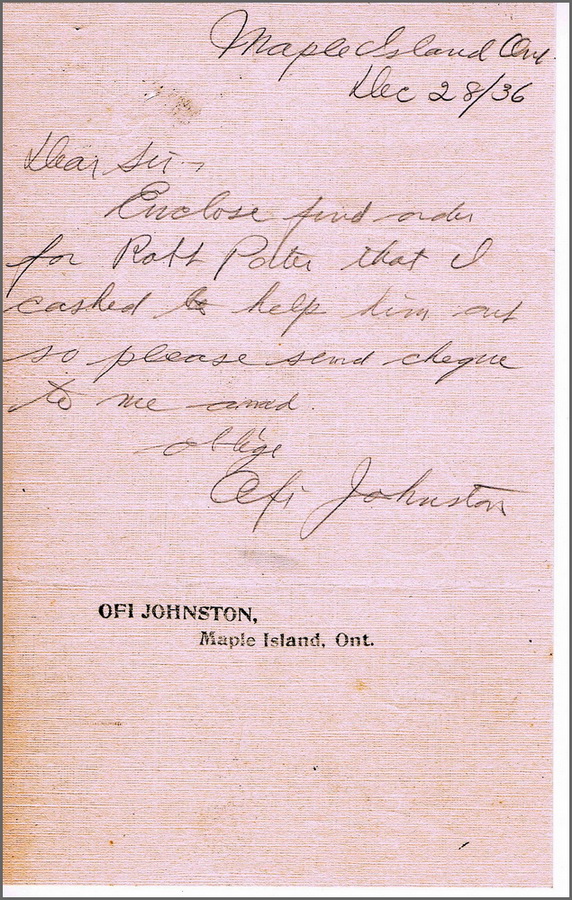 Maple Island Ont.
Dec 28/36
Dear Sir
Enclose find order
for Robt Potter that I
cashed to help him out
so please send cheque
to me and
oblige
Ofi Johnston
OFI JOHNSTON,
Maple Island, Ont.